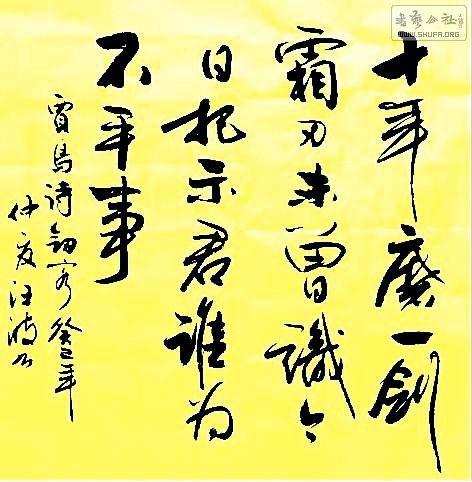 書藝公社
WWW.SHUFA.ORG
十年磨一劍
霜刃未曾識今
日把示君誰为
不平事
賈島诗劍客癸巳年
仲夏汪